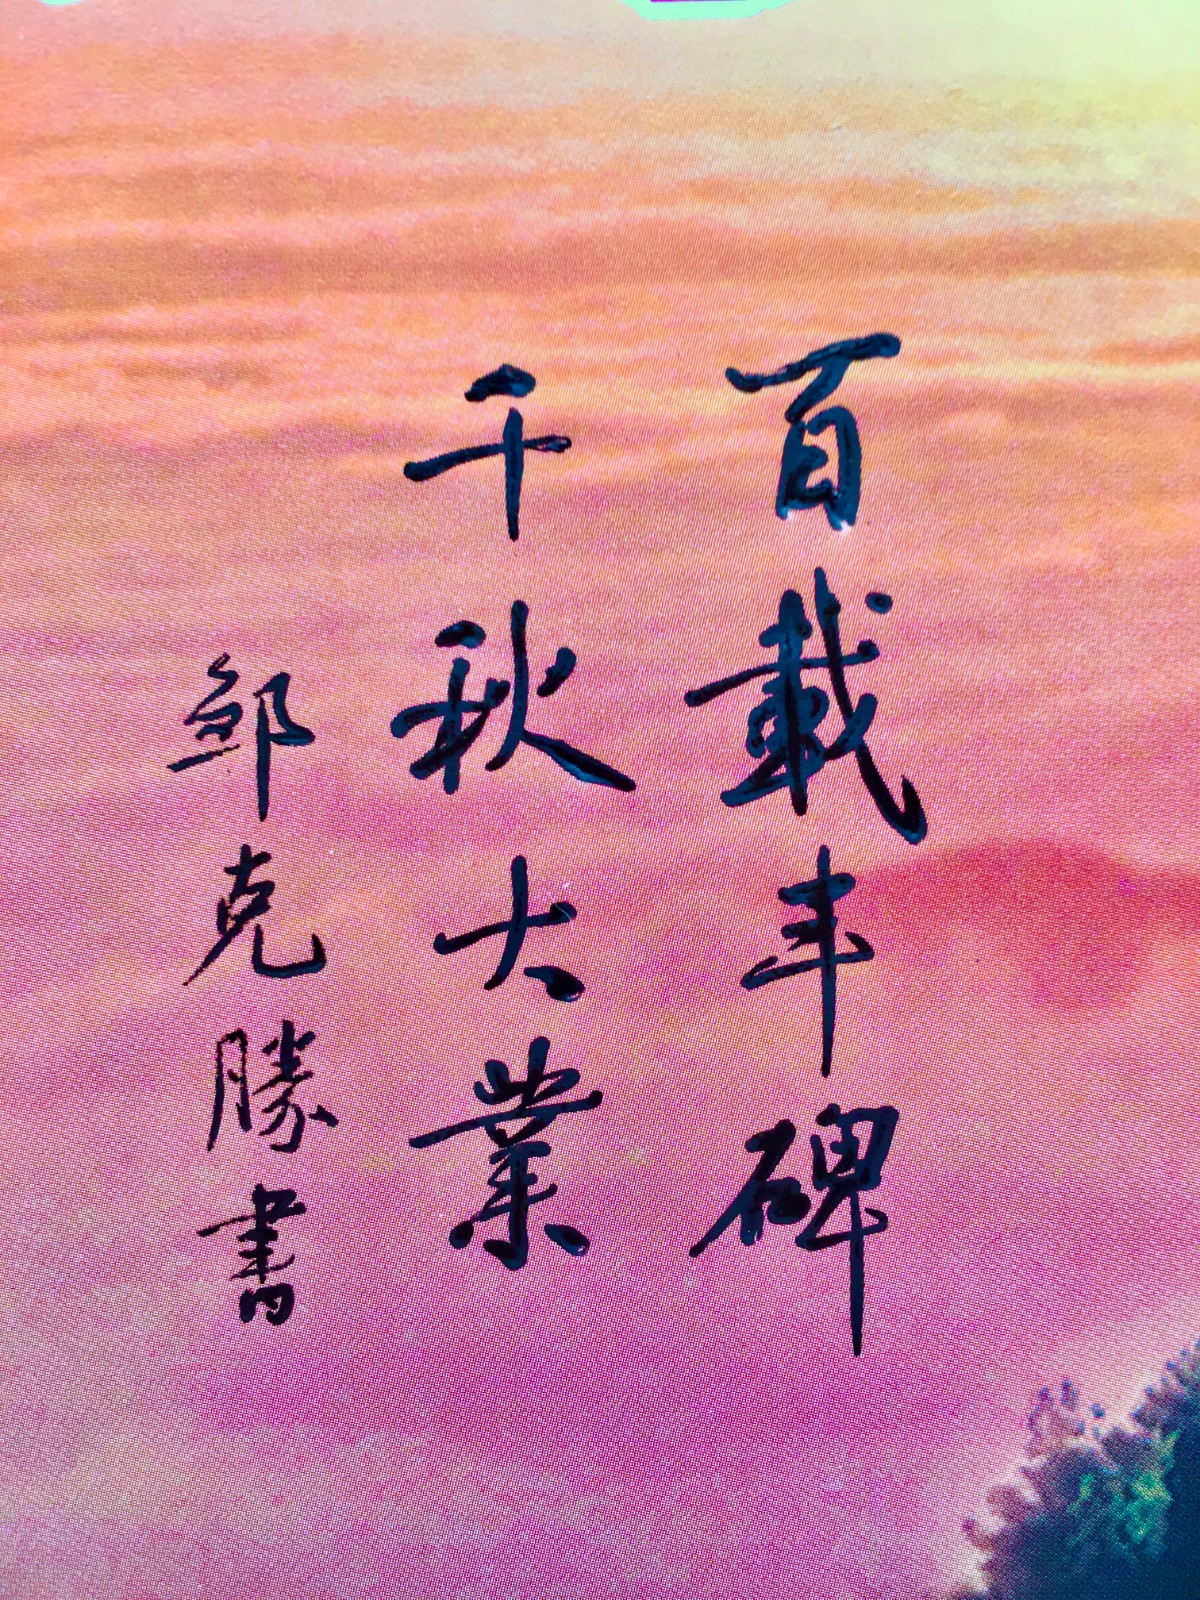 百載丰碑
千秋大業
邹克勝書